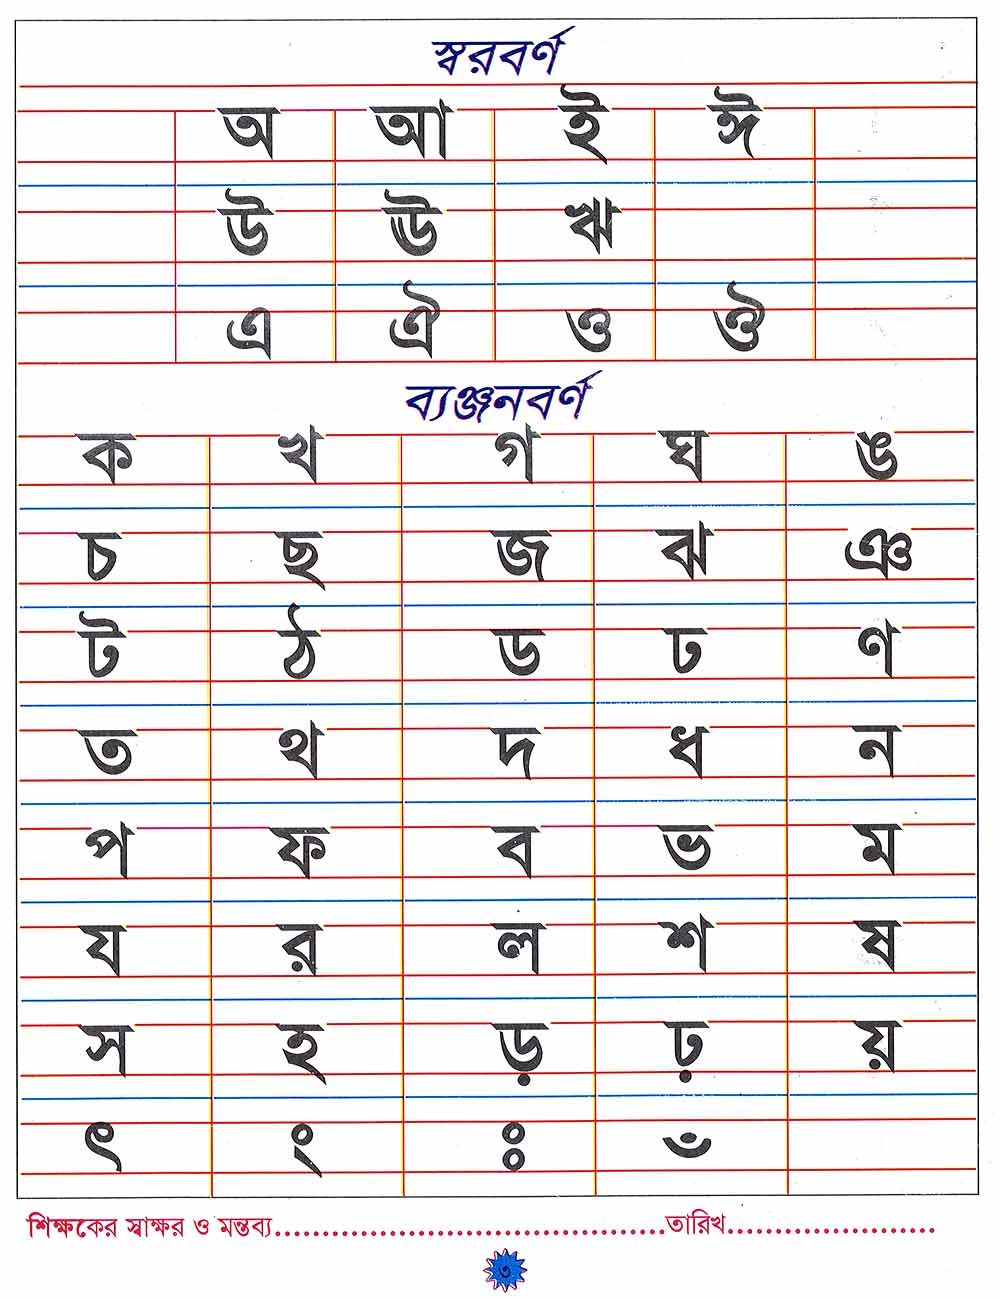 স্বরবর্ণ
অ আ ই ঈ
উ ঊ ঋ
এ ঐ ও ঔ
ব্যঞ্জনবর্ণ
ক খ গ ঘ ঙ
চ ছ জ ঝ ঞ
ট ঠ ড ঢ ণ
ত থ দ ধ ন
প ফ ব ভ ম
য র ল শ ষ
স হ ড় ঢ় য়
ৎ ং ঃ ঁ
শিক্ষকের স্বাক্ষর ও মন্তব্য..........................................তারিখ......................
৩